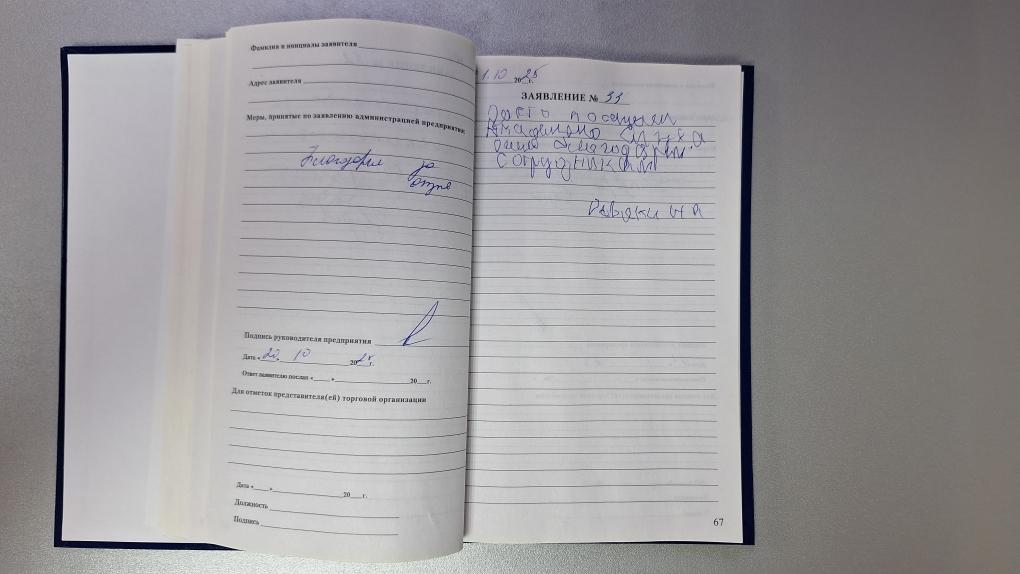 Фамилия и инициалы заявителя
Адрес заявителя
Меры, принятые по заявлению администрацией предприятия:
Благодарим за
отзыв
Подпись руководителя предприятия
Дата « 20 » 10 2025 г.
Ответ заявителю послан « » 20 г.
Для отметок представителя(ей) торговой организации
Дата « » 20 г.
Должность
Подпись
1.10 2025 г.
ЗАЯВЛЕНИЕ № 33
Часто посещаем
сотрудникам
Ревякина
67